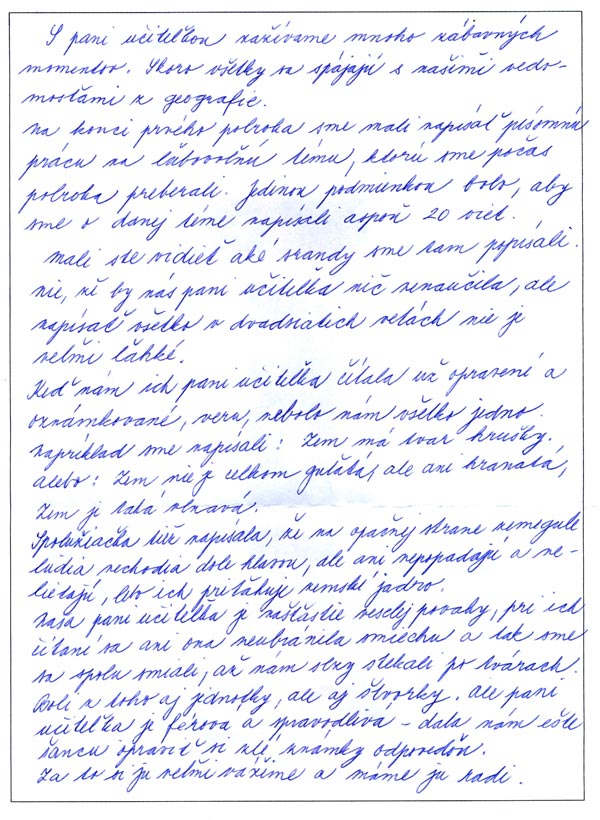 S pani učiteľkou zažívame mnoho zábavných
momentov. Skoro všetky sa spájajú s našimi vedo-
mosťami z geografie.
Na konci prvého polroka sme mali napísať písomnú
prácu na ľubovoľnú tému, ktorú sme počas
polroka preberali. Jedinou podmienkou bolo, aby
sme o danej téme napísali aspoň 20 viet.
Mali ste vidieť aké srandy sme tam popísali.
Nie, že by nás pani učiteľka nič nenaučila, ale
napísať všetko v dvadsiatich vetách nie je
veľmi ľahké.
Keď nám ich pani učiteľka čítala už opravené a
oznámkované, veru, nebolo nám všetko jedno.
Napríklad sme napísali: Zem má tvar hrušky.
alebo: Zem nie je celkom guľatá, ale ani hranatá,
Zem je taká vlnavá.
Spolužiačka tiež napísala, že na opačnej strane zemegule
ľudia nechodia dole hlavou, ale ani nepopadajú a ne-
lietajú, lebo ich priťahuje zemské jadro.
Naša pani učiteľka je našťastie veselej povahy, pri ich
čítaní sa ani ona neubránila smiechu a tak sme
sa spolu smiali, až nám slzy stekali po tvárach.
Boli z toho aj jednotky, ale aj štvorky. Ale pani
učiteľka je férova a spravodliva – dala nám ešte
šancu opraviť si zlé známky odpoveďou.
Za to si ju veľmi vážime a máme ju radi.